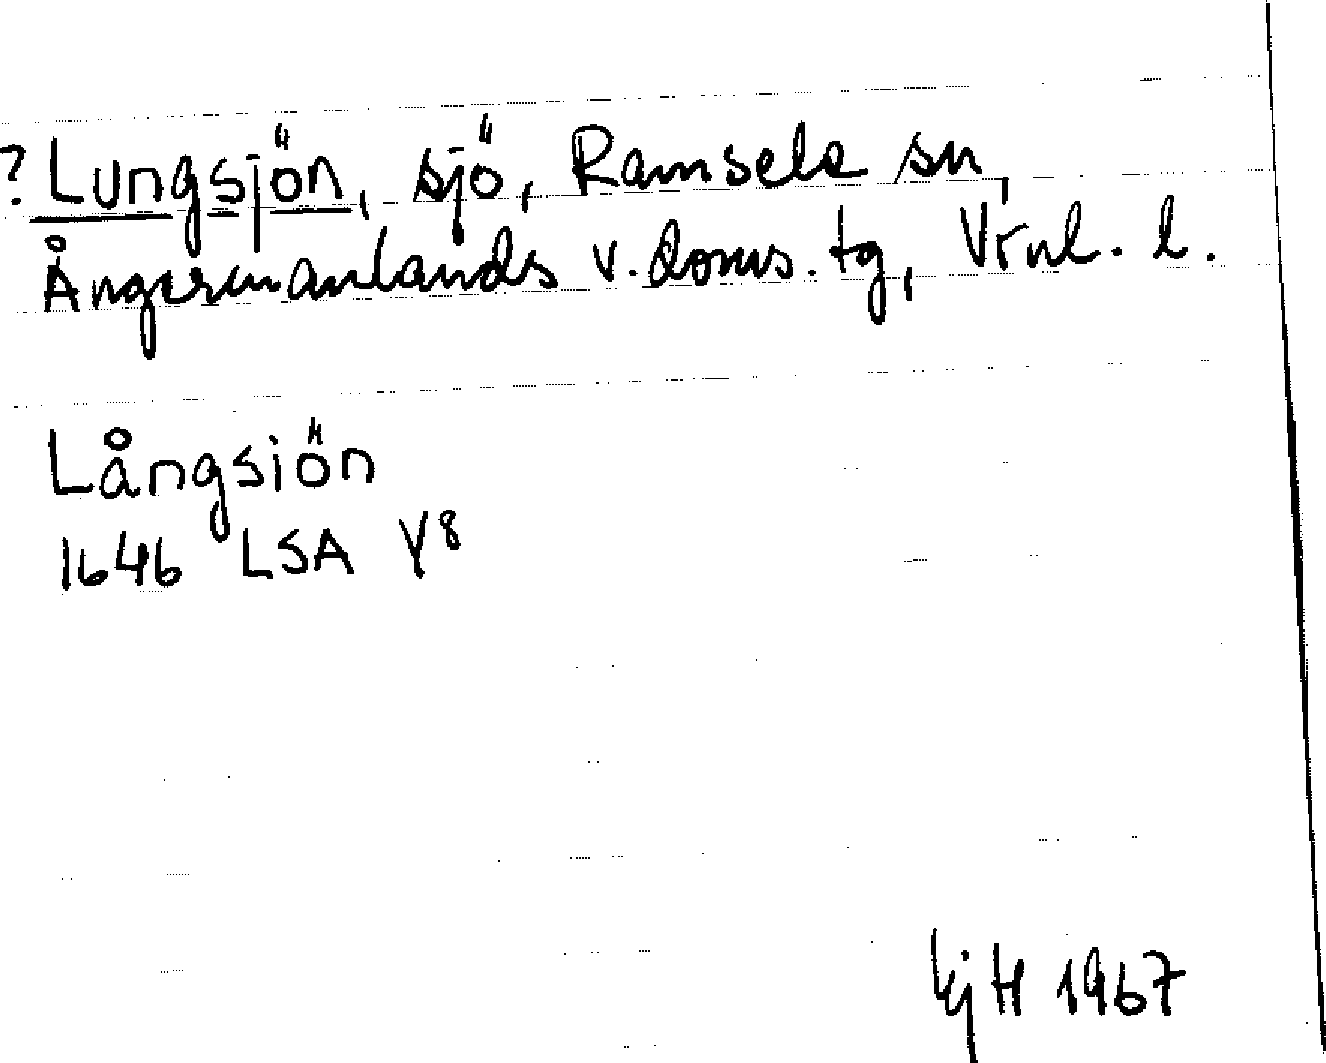 ? Lungsjön, sjö, Ramsele sn,
Ångermanlands v. doms. tg, Vrnl. l.
Långsiön
1646 LSA Y8
KjH 1967